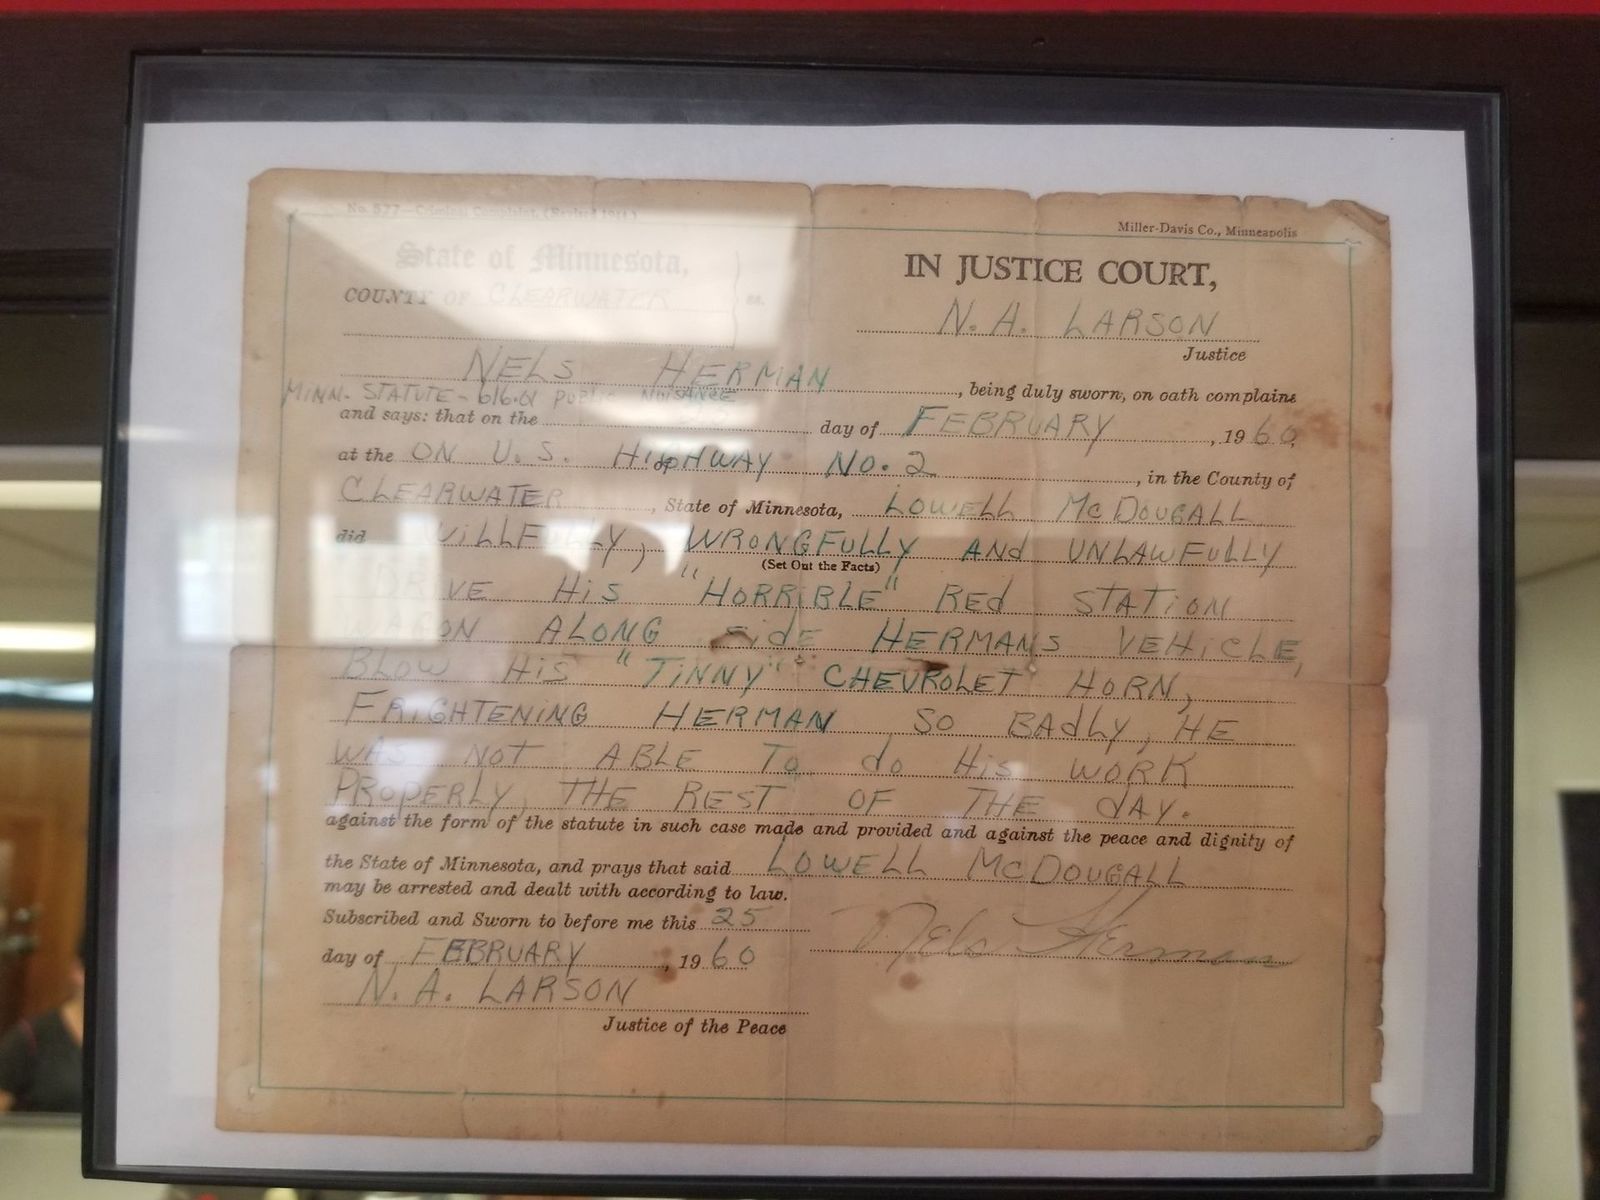 No. 577—Criminal Complaint. (Revised 1941)
Miller-Davis Co., Minneapolis
State of Minnesota,
IN JUSTICE COURT,
COUNTY OF CLEARWATER
ss.
N. A. LARSON
Justice
NELS HERMAN, being duly sworn, on oath complains
MINN. STATUTE - 616.01 PUBLIC NUISANCE
and says: that on the day of FEBRUARY, 1960,
at the ON U.S. HIGHWAY NO. 2, in the County of
of
CLEARWATER, State of Minnesota, LOWELL McDOUGALL
did WILLFULLY, WRONGFULLY ANd UNLAWFULLY
(Set Out the Facts)
DRIVE HiS "HORRIBLE" REd STATION
WAGON ALONG SidE HERMANS VEHiCLE,
BLOW HiS "TiNNY" CHEVROLET HORN,
FRIGHTENING HERMAN SO BAdLY, HE
WAS NOT ABLE To do HiS WORK
PROPERLY, THE REST OF THE dAY.
against the form of the statute in such case made and provided and against the peace and dignity of
the State of Minnesota, and prays that said LOWELL McDOUGALL
may be arrested and dealt with according to law.
Subscribed and Sworn to before me this 25
Nels Herman
day of FEBRUARY, 1960
N. A. LARSON
Justice of the Peace